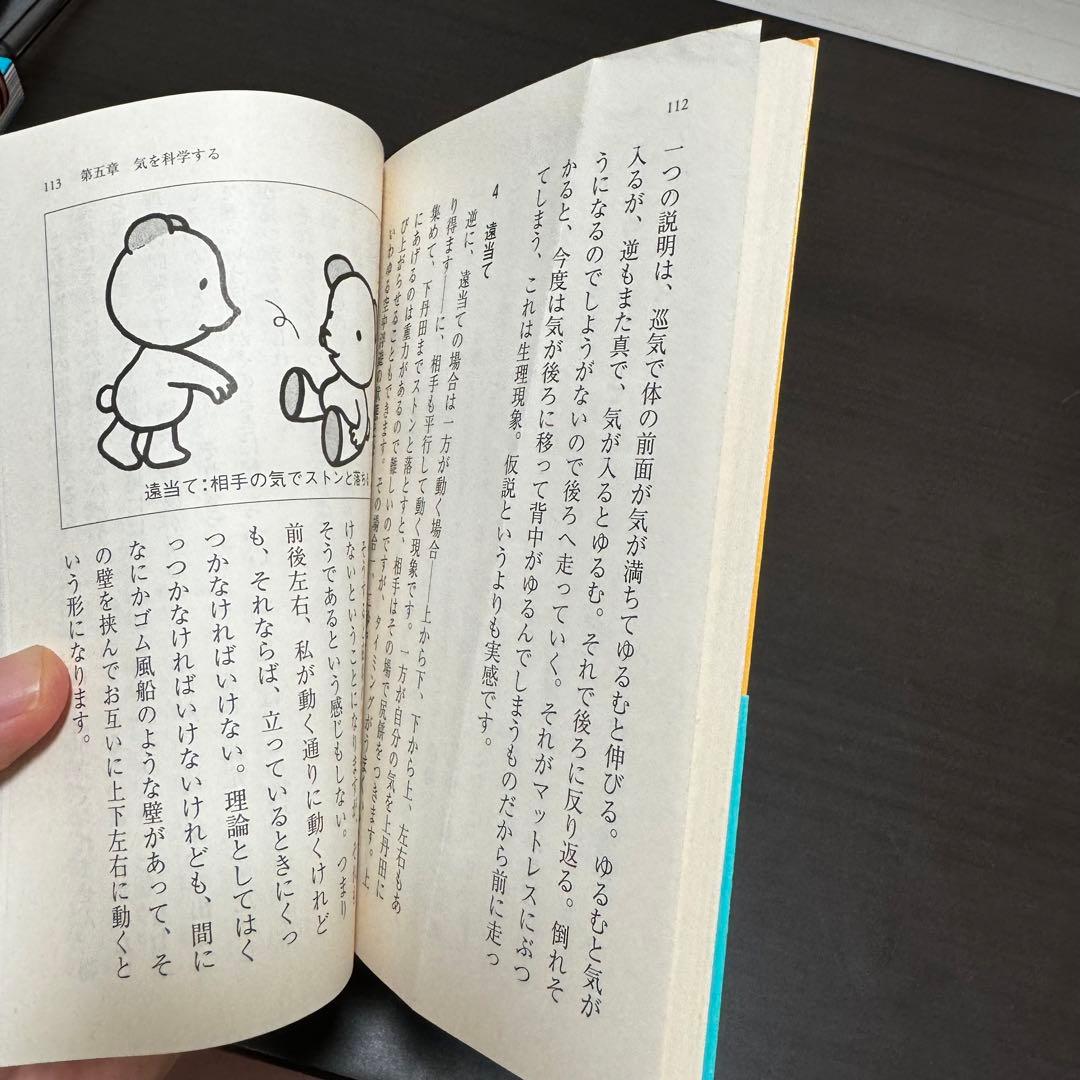 112
一つの説明は、巡気で体の前面が気が満ちてゆるむと伸びる。ゆるむと気が
入るが、逆もまた真で、気が入るとゆるむ。それで後ろに反り返る。倒れそ
うになるのでしようがないので後ろへ走っていく。それがマットレスにぶつ
かると、今度は気が後ろに移って背中がゆるんでしまうものだから前に走っ
てしまう、これは生理現象。仮説というよりも実感です。
4 遠当て
逆に、遠当ての場合は一方が動く場合――上から下、下から上、左右もあ
り得ます――に、相手も平行して動く現象です。一方が自分の気を上丹田に
集めて、下丹田までストンと落とすと、相手はその場で尻餅をつきます。上
にあげるのは重力があるので難しいのですが、タイミングがうま
び上がらせることもできます。その場合
いわゆる空中
113 第五章 気を科学する
遠当て:相手の気でストンと落ち
けないということになりますが、
そうであるという感じもしない。つまり
前後左右、私が動く通りに動くけれど
も、それならば、立っているときにくっ
つかなければいけない。理論としてはく
っつかなければいけないけれども、間に
なにかゴム風船のような壁があって、そ
の壁を挟んでお互いに上下左右に動くと
いう形になります。